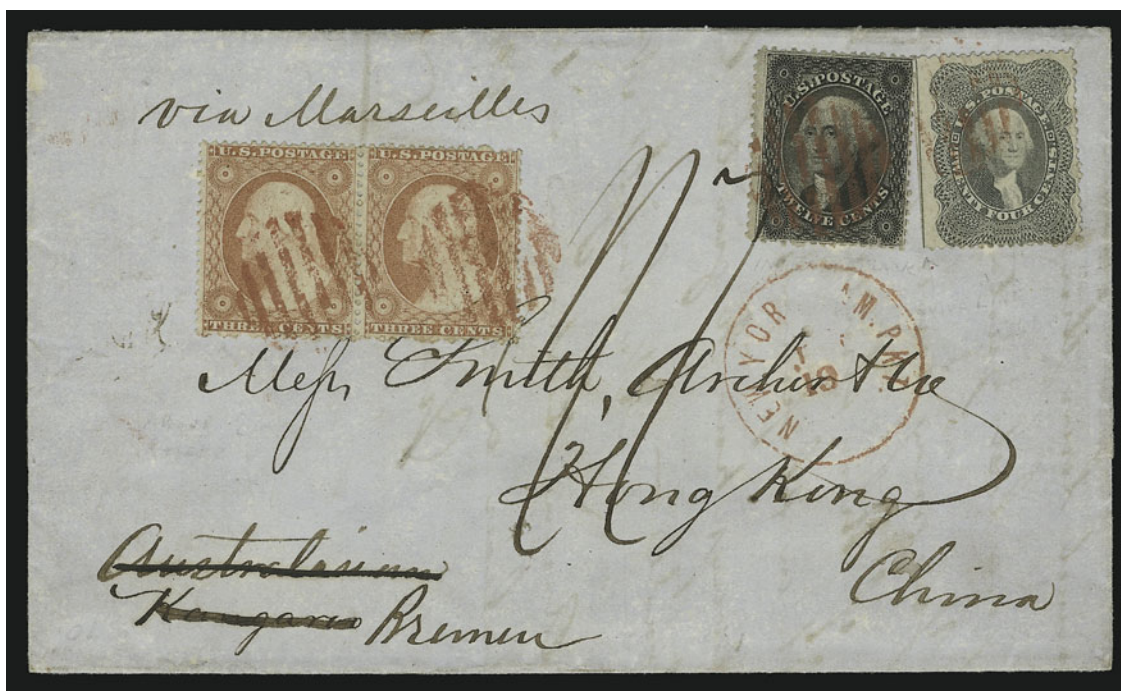 via Marseilles
U.S. POSTAGE
THREE CENTS
U.S. POSTAGE
THREE CENTS
U.S. POSTAGE
TWELVE CENTS
U.S. POSTAGE.
TWENTY FOUR CENTS
NEW YOR AM. PKT
19
Messrs Smith, Archer & Co
Hong Kong
China
Australasian
Kangaroo Bremen